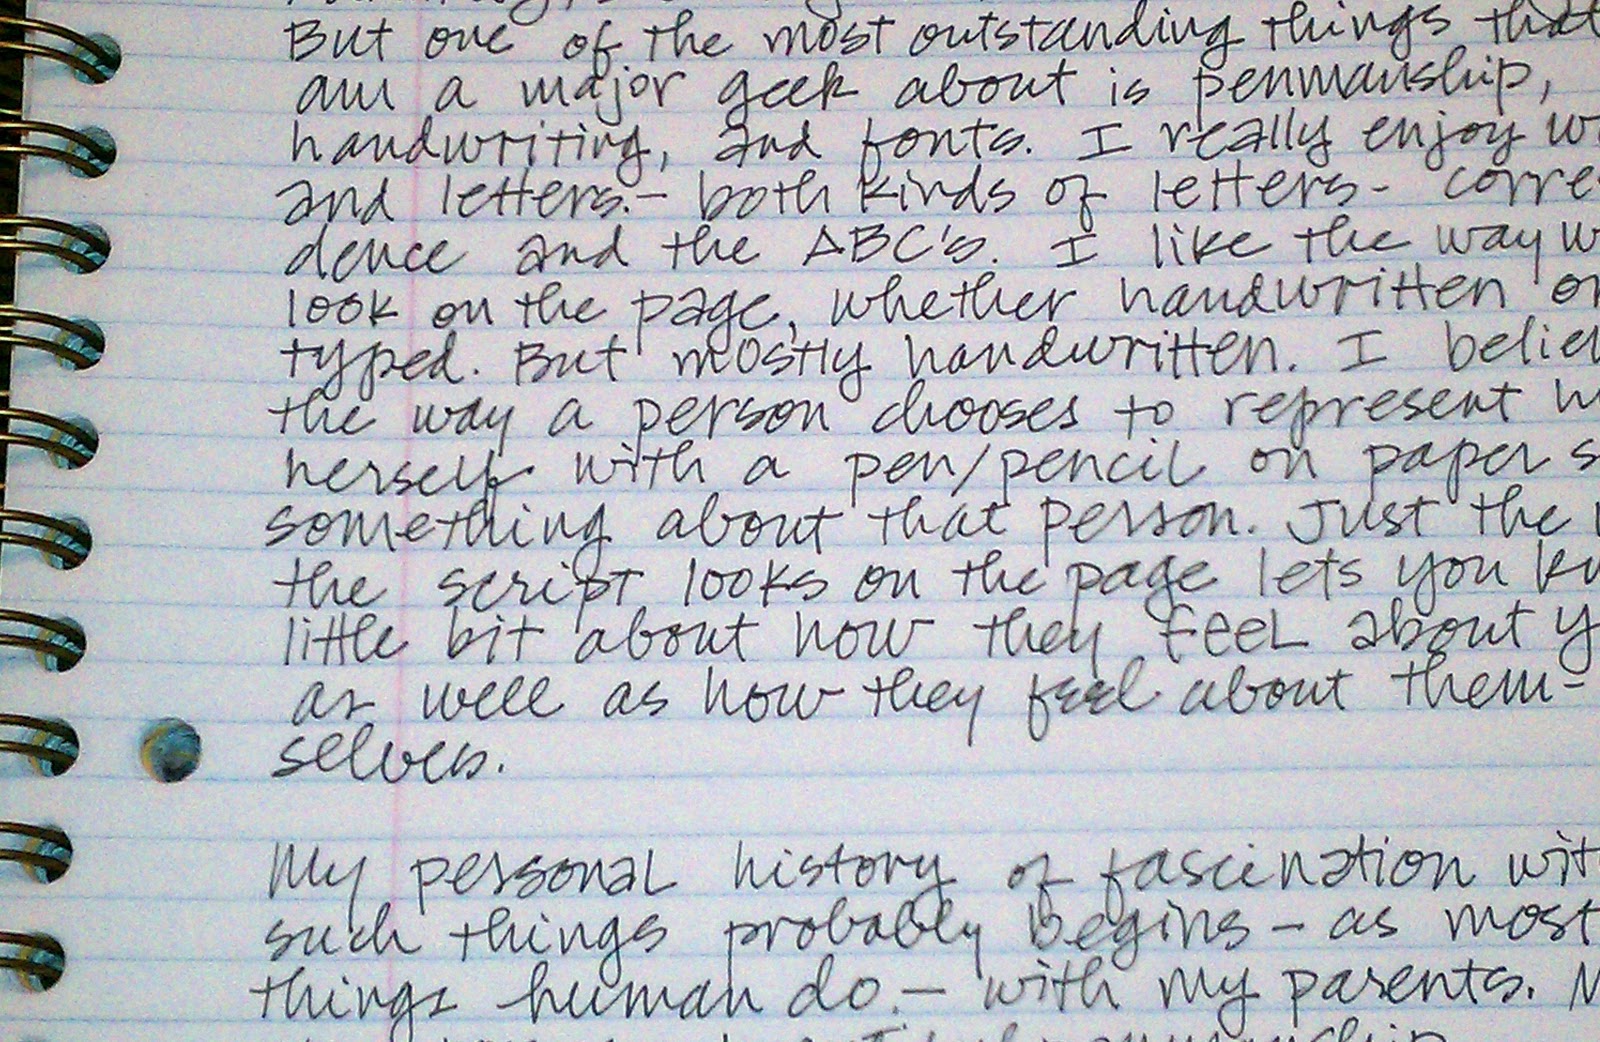 But one of the most outstanding things that
am a major geek about is penmanship,
handwriting, and fonts. I really enjoy
and letters. - both kinds of letters - corre
dence and the ABC's. I like the way
look on the page, whether handwritten or
typed. But mostly handwritten. I belie
the way a person chooses to represent
herself with a pen/pencil on paper s
something about that person. Just the
the script looks on the page lets you
little bit about how they FEEL about y
as well as how they feel about them-
selves.
My personal history of fascination wit
such things probably begins - as most
things human do. - with my parents.
penmanship